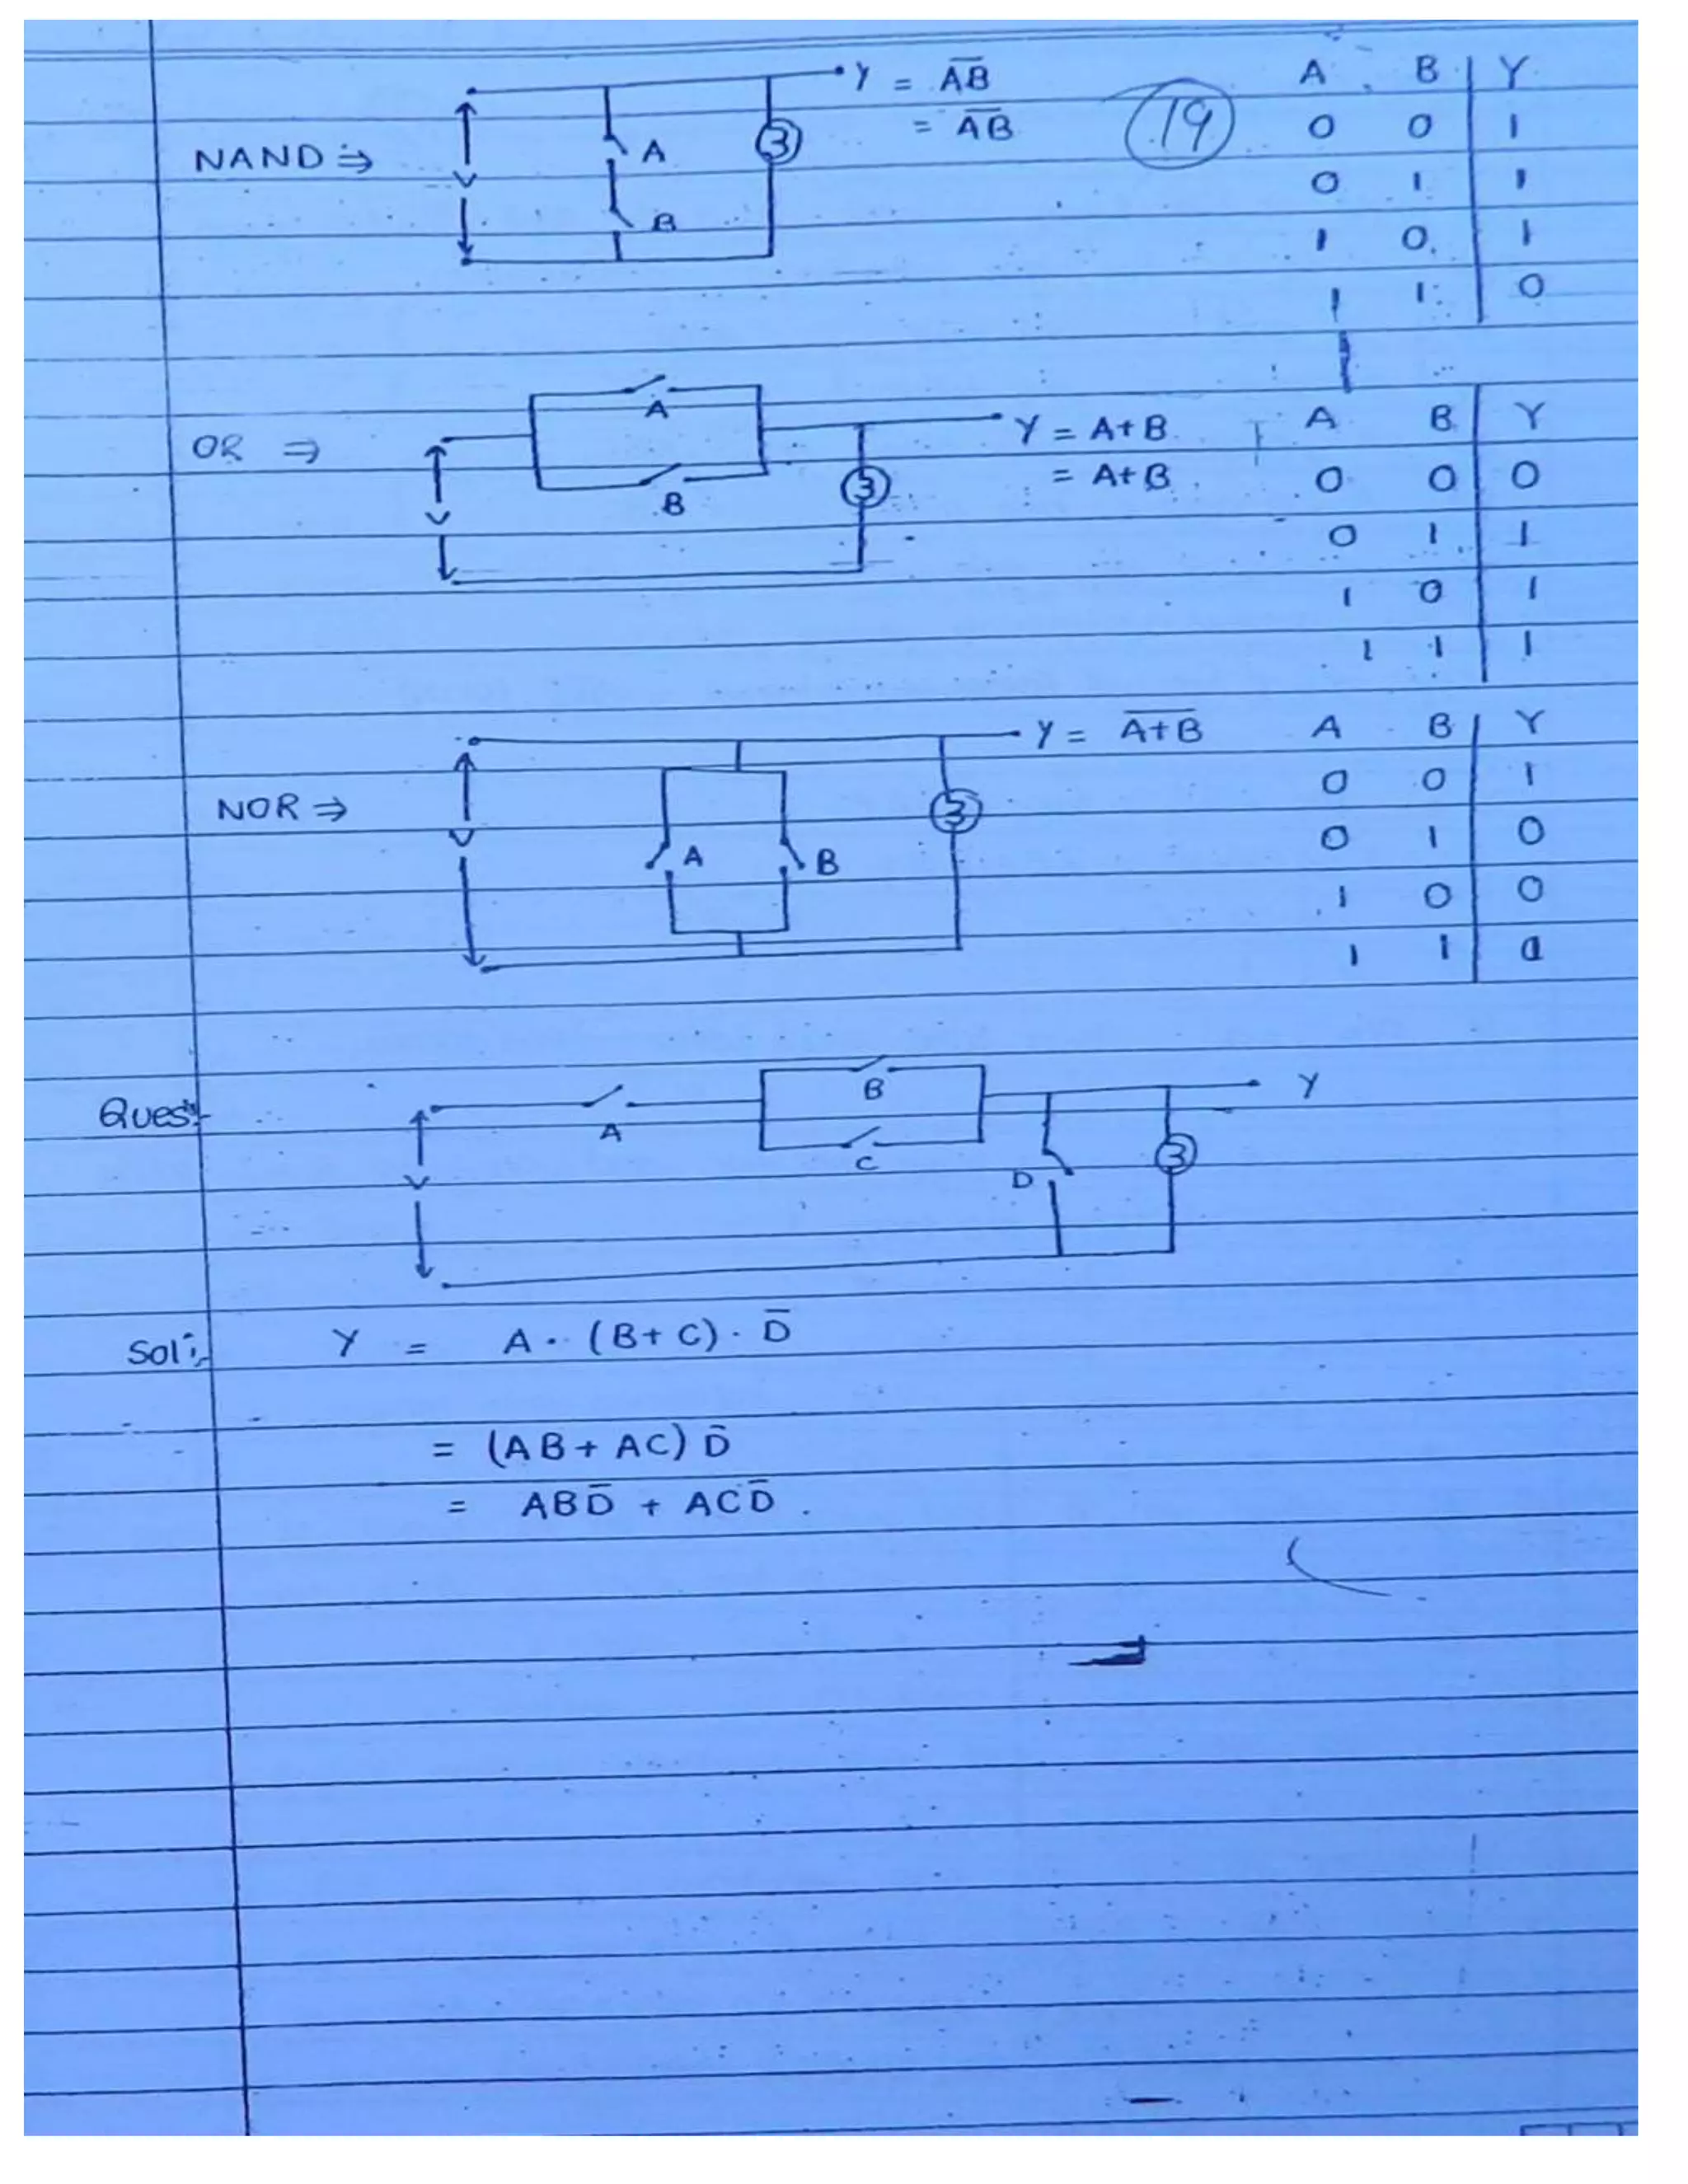 Y = A̅B̅
= A̅B̅
19
NAND ⇒
V
A
B
3
A B Y
0 0 1
0 1 1
1 0 1
1 1 0
OR ⇒
V
A
B
3
Y = A+B
= A+B
A B Y
0 0 0
0 1 1
1 0 1
1 1 1
NOR ⇒
V
A
B
3
Y = A̅+̅B̅
A B Y
0 0 1
0 1 0
1 0 0
1 1 0
Ques:-
V
A
B
C
D
3
Y
Sol:- Y = A · (B+C) · D̅
= (AB + AC) D̅
= ABD̅ + ACD̅ .